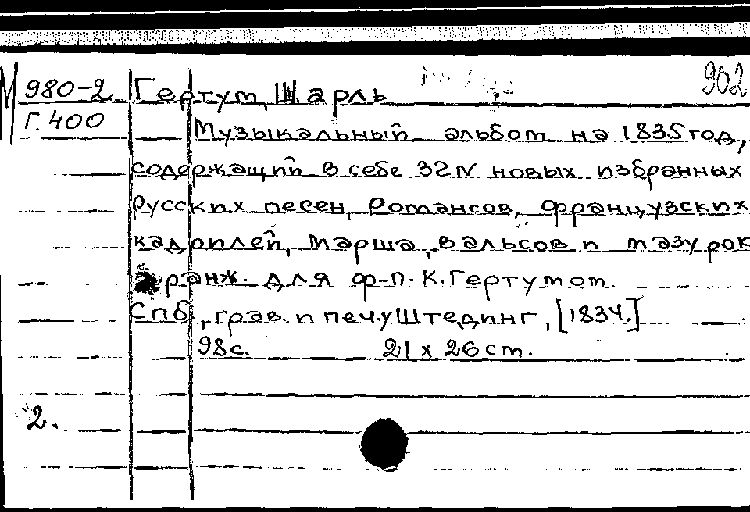 902
980-2 Гертум, Шарль
Г.400
Музыкальный альбом на 1835 год,
содержащий в себе 32 N новых избранных
русских песен, Романсов, французских
кадрилей, марша, вальсов и мазурок
аранж. для ф-п. К. Гертумом.
Спб., грав. и печ. у Штединг, [1834.]
98 с. 21 x 26 см.
2.